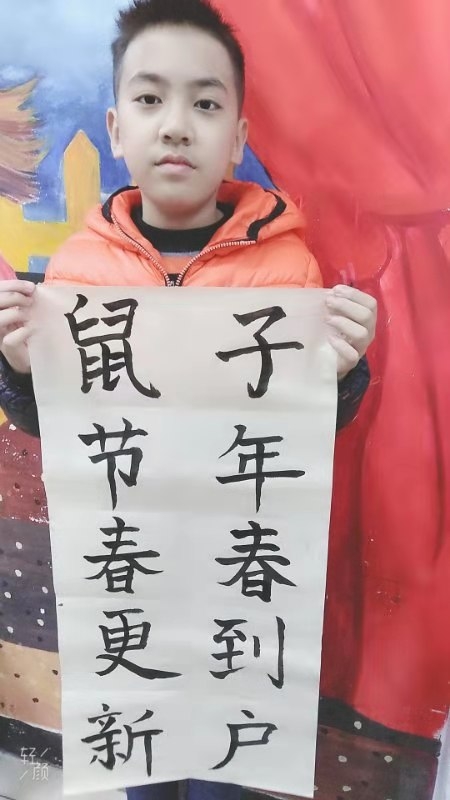 子年春到户
鼠节春更新
轻颜